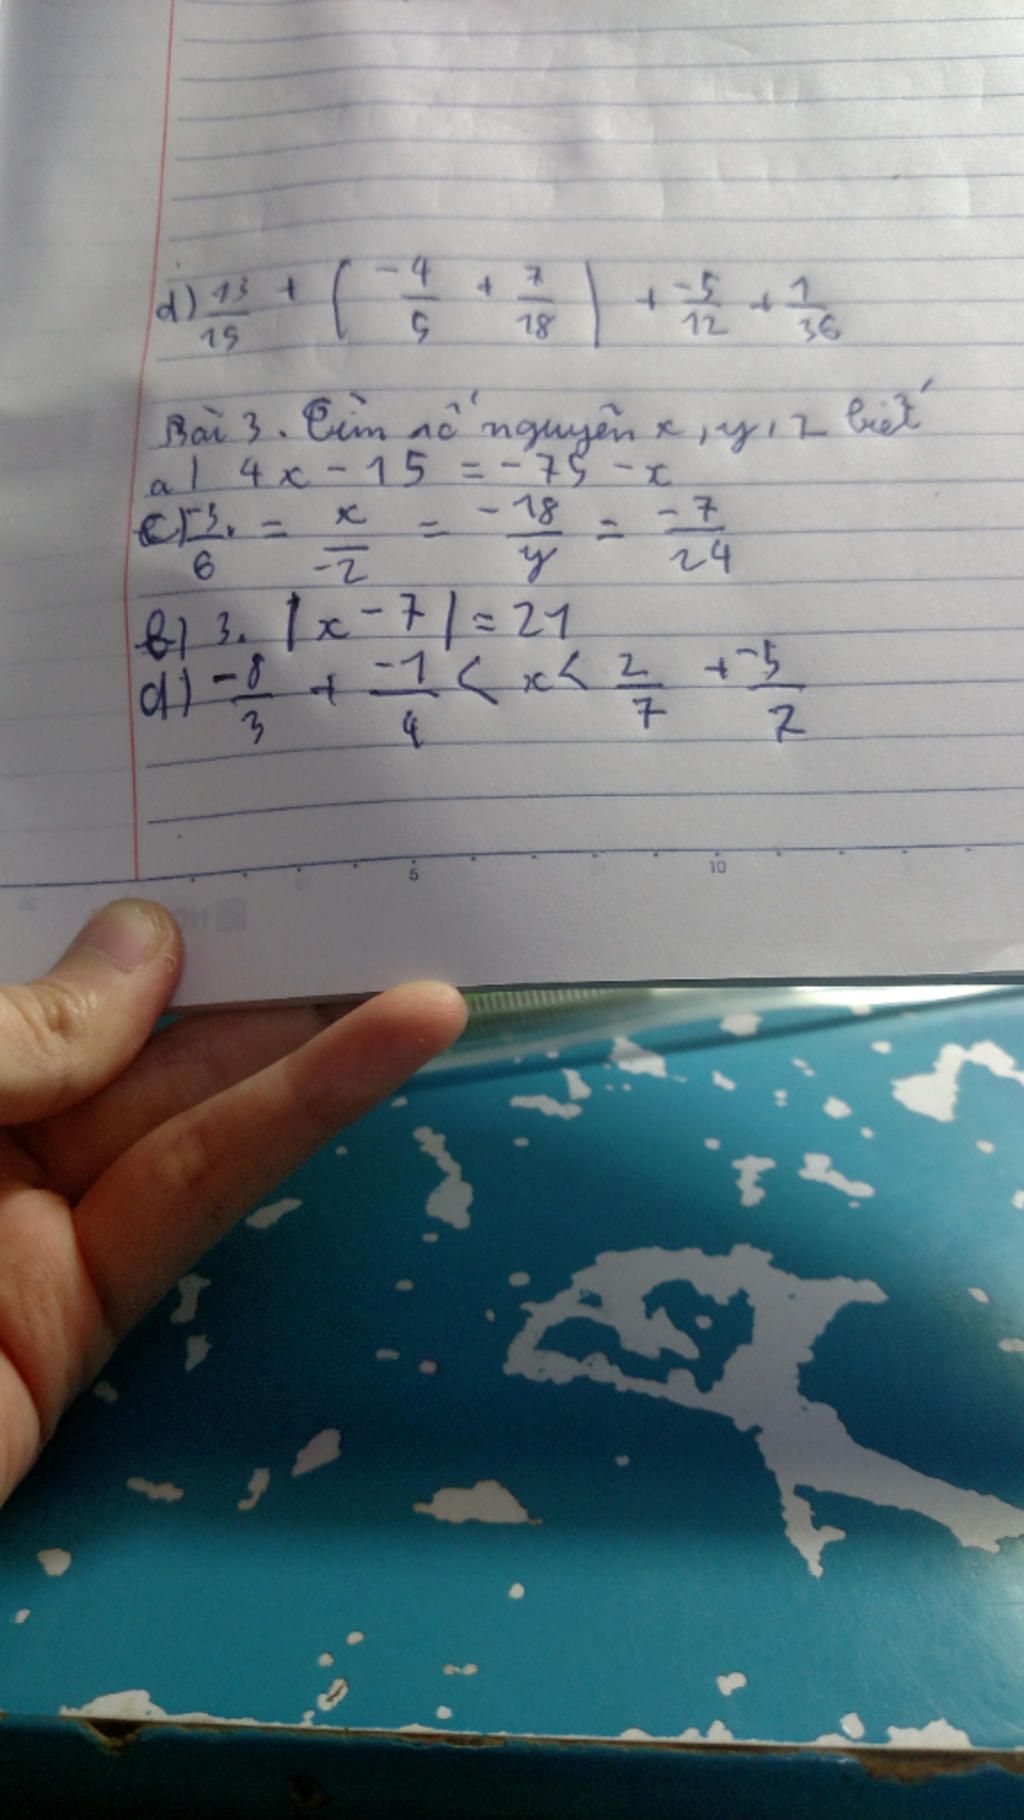 d) 13/15 + ( -4/5 + 7/18 ) + -5/12 + 1/36
Bài 3. Tìm số nguyên x, y, z biết
a) 4x - 15 = -75 - x
c) -3/6 = x/-2 = -18/y = -7/24
b) 3. |x - 7| = 21
d) -8/3 + -1/4 < x < 2/7 + -5/7
5 10